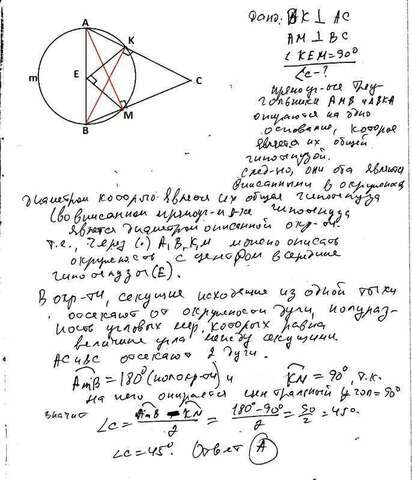 A
K
m
E
C
M
B
Дано: BK ⊥ AC
AM ⊥ BC
∠KEM = 90°
∠C - ?
прямоуг-ые треу-
гольники AMB и ABKA
опираются на одно
основание, которое
является их общей
гипотенузой.
след-но, они оба являются
вписанными в окружность
диаметром которого является их общая гипотенуза
(во вписанном прямоуг-ке гипотенуза
является диаметром описанной окр-ти.
т.е., через (.) A, B, K, M можно описать
окружность с центром в середине
гипотенузы (E).
В окр-ти, секущие исходящие из одной точки
отсекают от окружности дуги, полураз-
ность угловых мер, которых равна
величине угла между секущими
AC и BC отсекают 2 дуги.
AmB = 180° (полокр-ти) и KN = 90°, т.к.
на него опирается центральный угол = 90°
значит
∠C = AmB - KN / 2 = 180° - 90° / 2 = 90 / 2 = 45°.
∠C = 45°. Ответ A